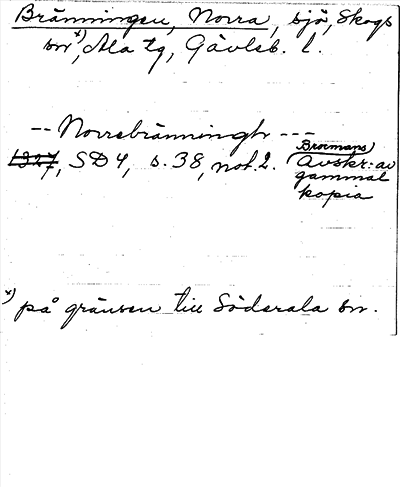 Bränningen, Norra, sjö, Skogs
sn x), Ala tg, Gävleb. l.
-- Norrebränningh ---
1327, SD 4, s. 38, not. 2. (Brocmans)
Avskr. av
gammal
kopia
x) på gränsen till Söderala sn.